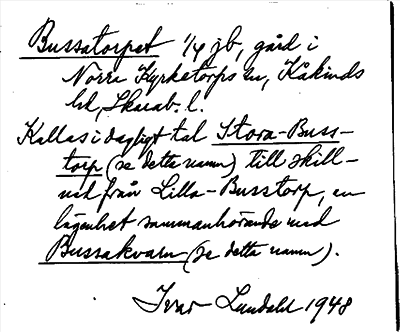 Bussatorpet 1/4 jb, gård i
Norra Kyrketorps sn, Kåkinds
hd, Skarab. l.
Kallas i dagligt tal Stora-Buss-
torp (se detta namn) till skill-
nad från Lilla-Busstorp, en
lägenhet sammanhörande med
Bussakvarn (se detta namn).
Ivar Lundahl 1948